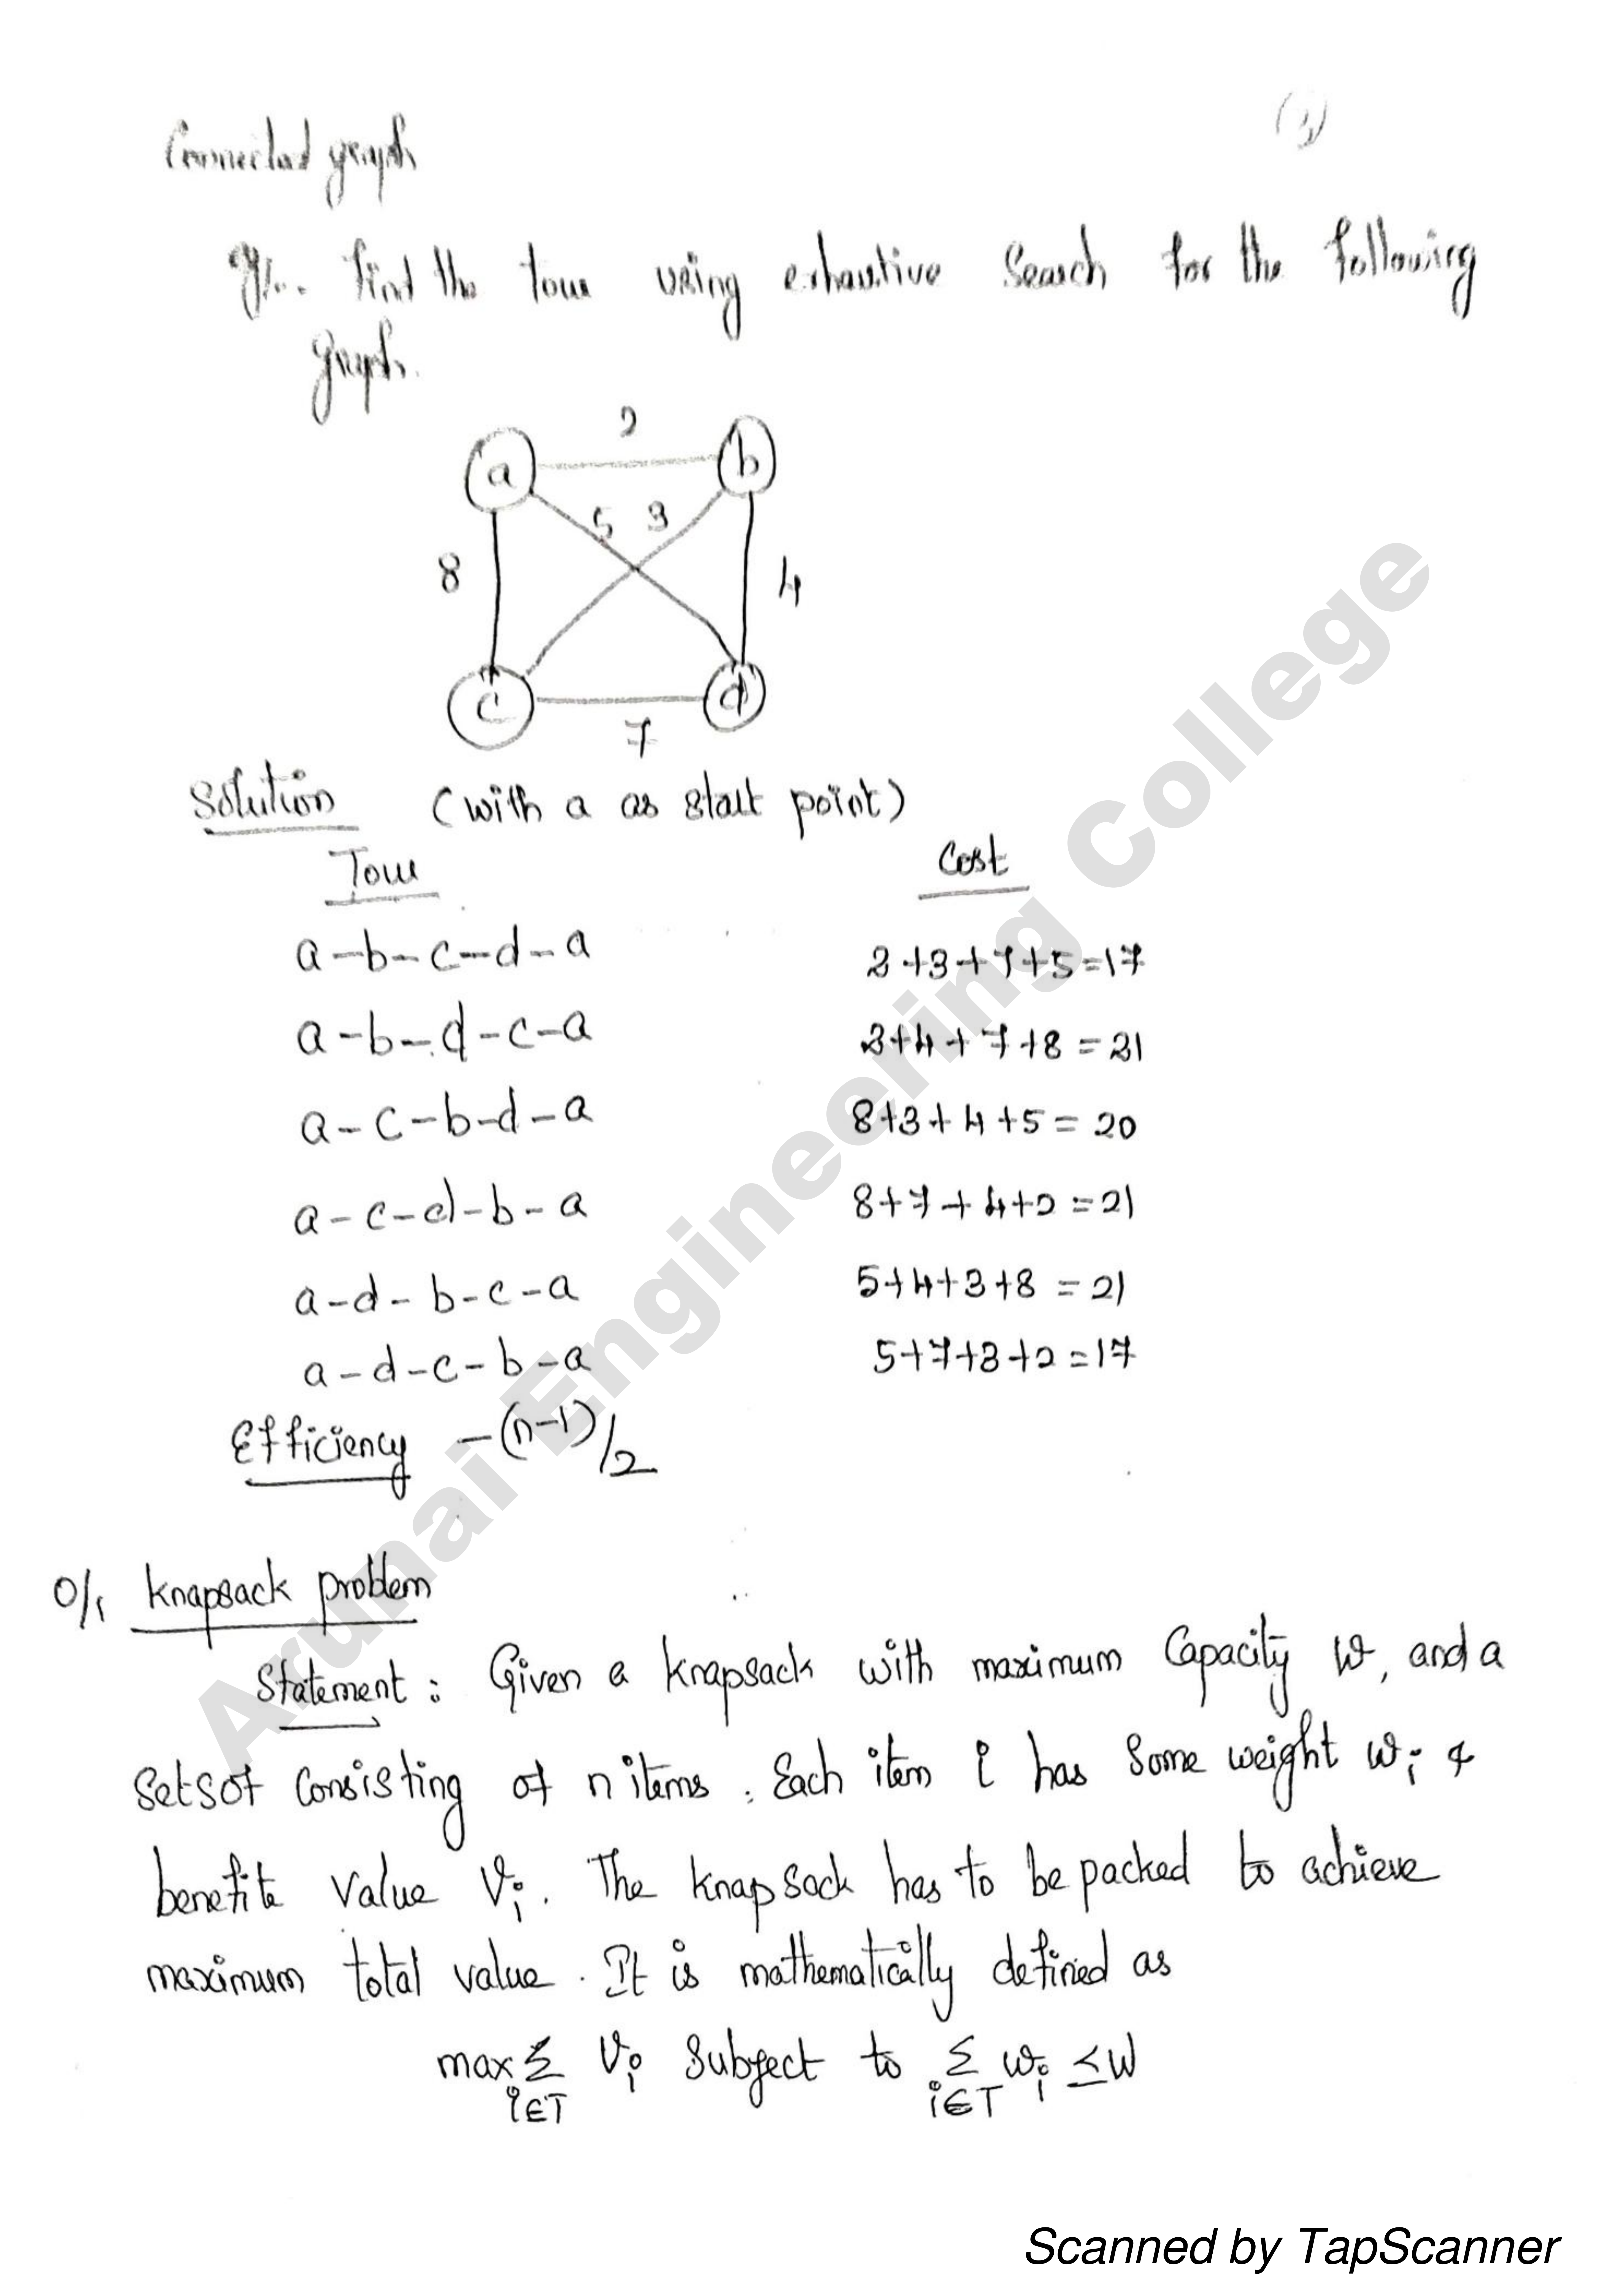 Connected graph
(3)
Find the tour using exhaustive Search for the following
graph.
2
a b
5 3
8 4
c d
7
Solution (with a as start point)
Tour Cost
a-b-c-d-a 2+3+7+5=17
a-b-d-c-a 2+4+7+8=21
a-c-b-d-a 8+3+4+5=20
a-c-d-b-a 8+7+4+2=21
a-d-b-c-a 5+4+3+8=21
a-d-c-b-a 5+7+3+2=17
Efficiency -(n-1)/2
0/1 Knapsack problem
Statement: Given a knapsack with maximum Capacity W, and a
Setsof Consisting of n items. Each item i has Some weight wi &
benefite Value Vi. The Knapsack has to be packed to achieve
maximum total value. It is mathematically defined as
max Σ Vi Subject to Σ wi ≤W
i∈T i∈T
Arunai Engineering College
Scanned by TapScanner